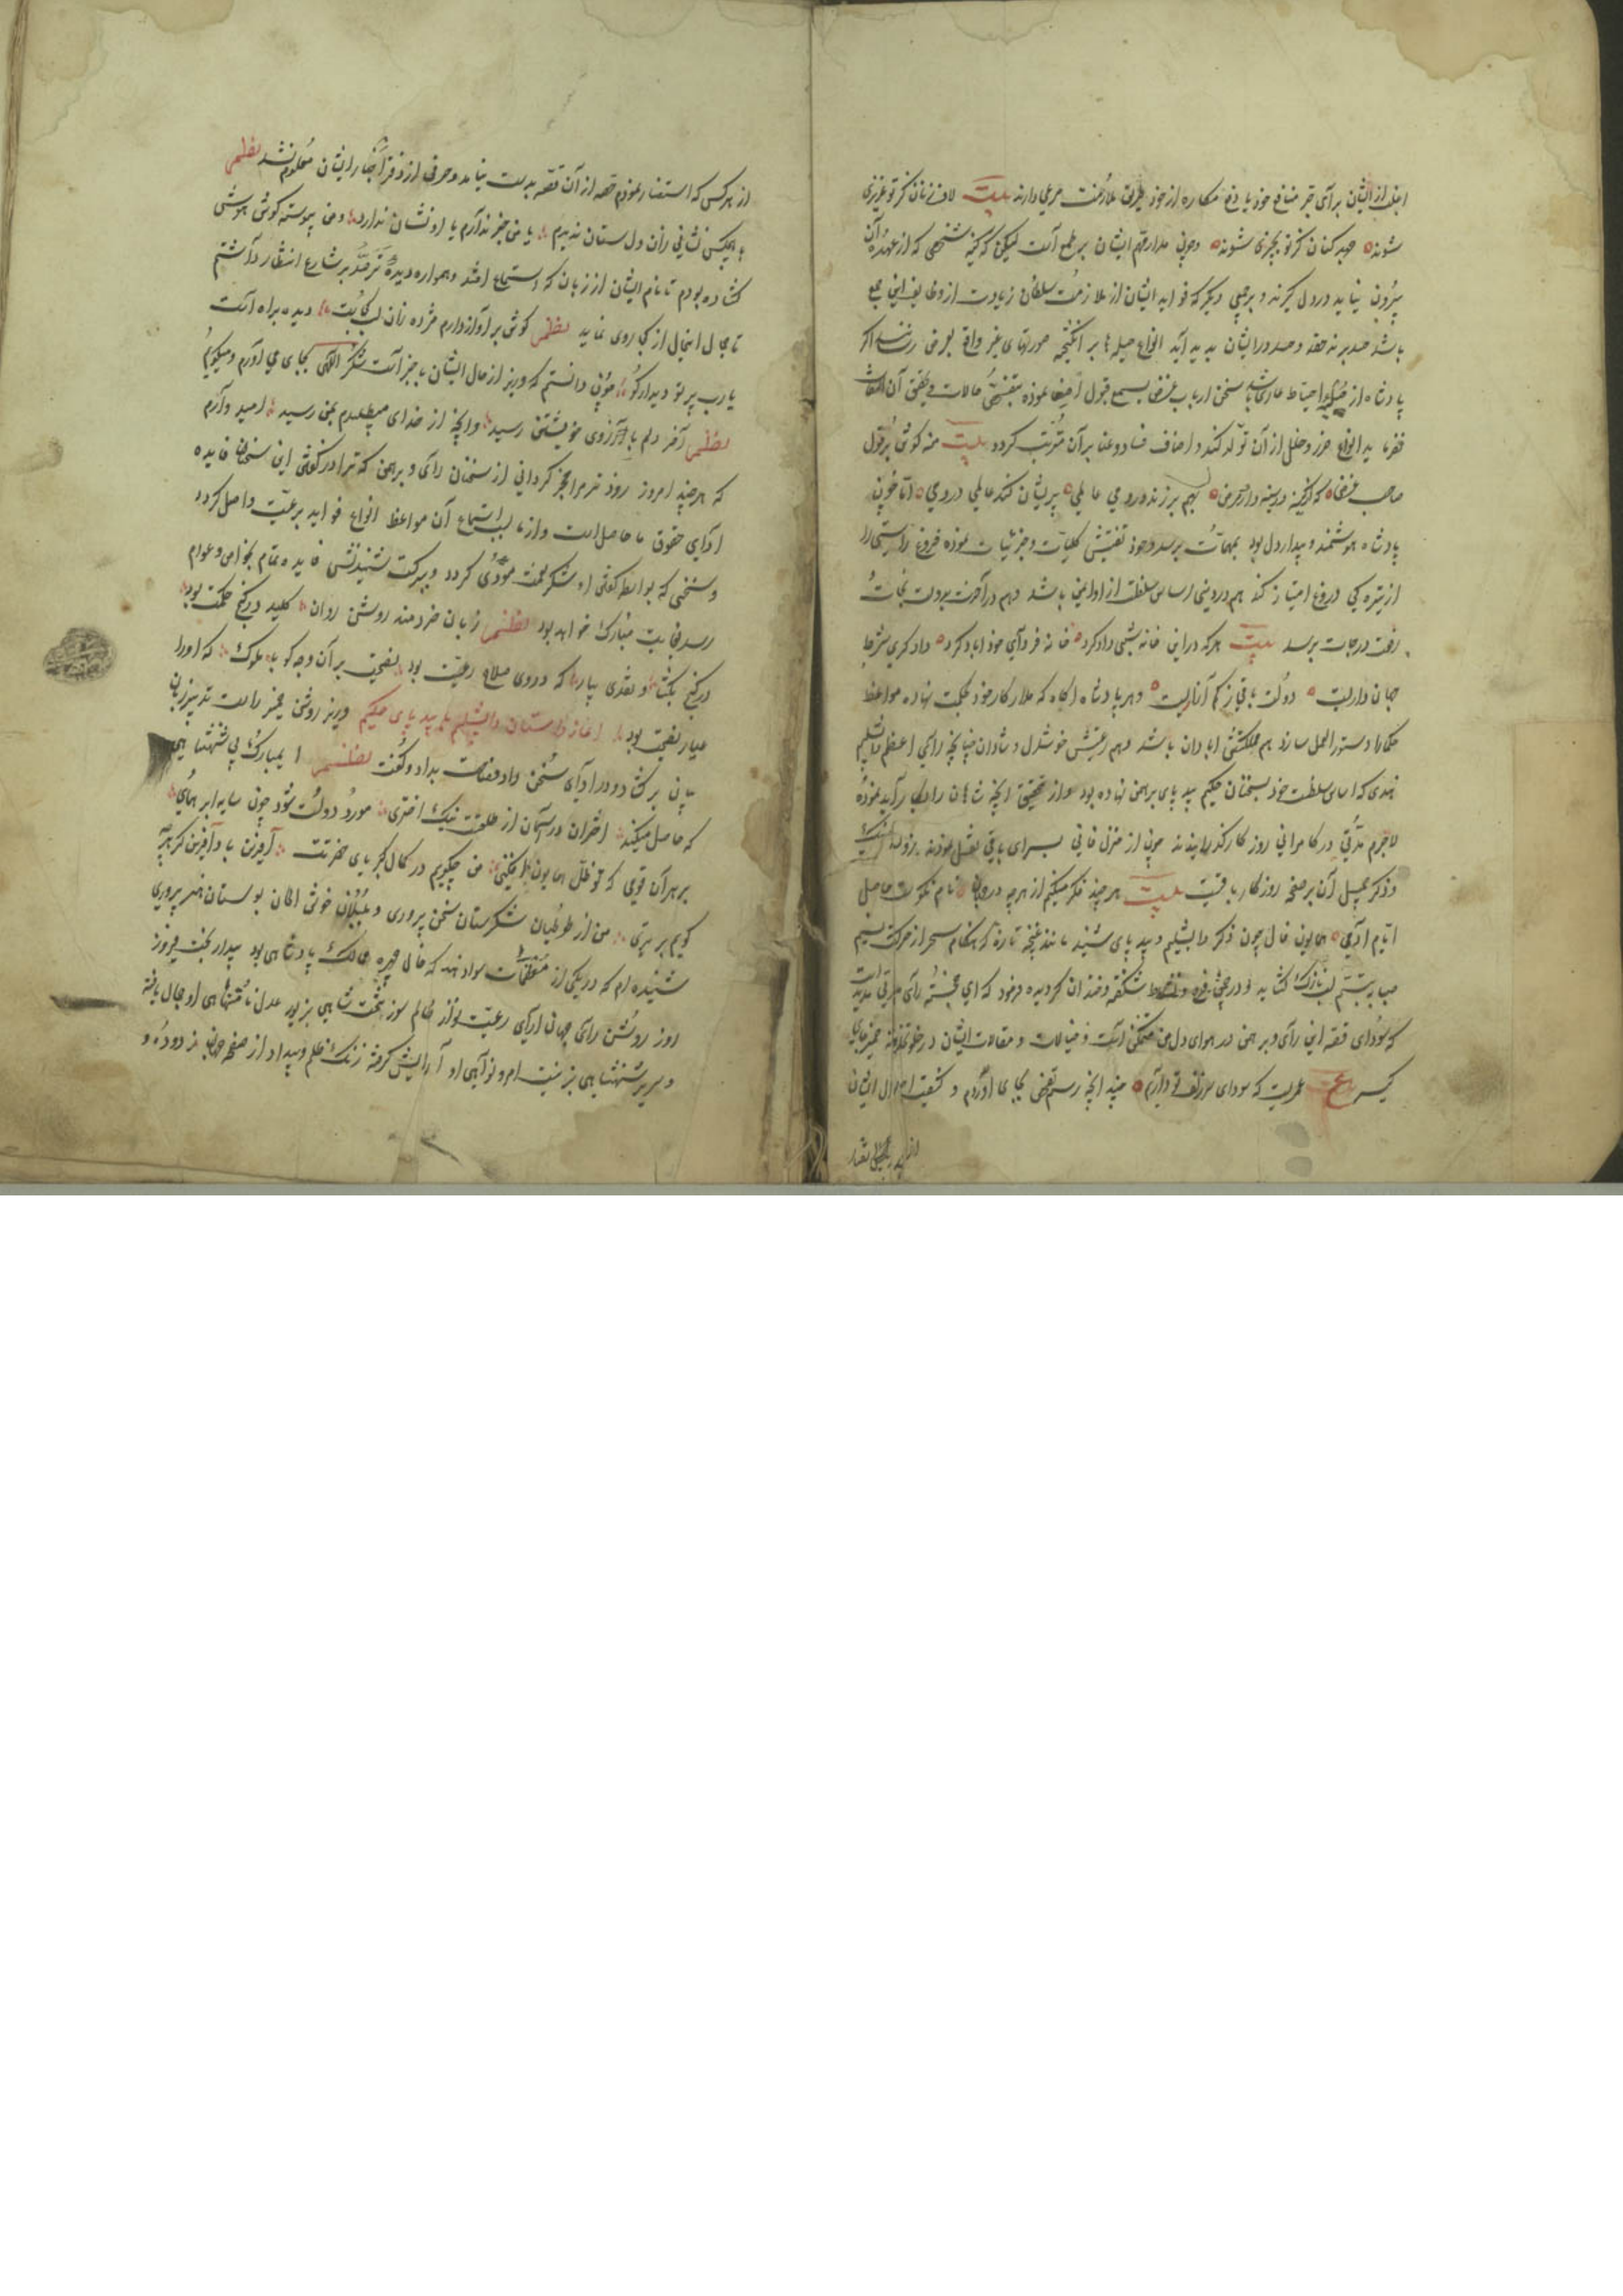 ایشان برای خود یا دفع مکاره از خود طریق ملازمت مرعی دارند بیت لاف زنان کز تو عزیزی
شوند جهد کنان کز تو بچیزی شوند و چون مدار مهم ایشان بر طمع است کینه شخصی که از عهده آن
بیرون نیاید در دل گیرند و بر جمعی دیگر که فواید ایشان از ملازمت سلطان زیادت از وظایف این جمع
باشد حسد برند حقد و حسد در ایشان پدید آید انواع حیلها بر انگیخته صورتهای غیر واقع بعرض رسانند اگر
پادشاه از حلیه احتیاط عاری باشد سخن ارباب غرض بسمع قبول اصغا نموده حالات و تحقیق آن التفات
نفرماید انواع ضرر و خلل از آن تولد کند و اصناف فساد و عنا بر آن مترتب گردد بیت منه گوش بر قول
صاحب غرض که کینه در سینه دارد مرض بهم بر زند در دمی عاملی پریشان کند عالمی در دمی اما چون
پادشاه هوشمند و بیدار دل بود بمهمات برسد و خود تفتیش کلیات و جزئیات نموده فروغ راستی را
از تیره کی دروغ امتیاز کند هم در دینی اساس سلطنت او ایمن باشد و هم در آخرت بدولت نجات
رفعت درجات برسد بیت هر که در این خانه شبی داد کرد خانه فردای خود آباد کرد داد گری شرط
جهان داریست دولت باقی ز کم آزاریست و هر پادشاه آگاه که مدار کار خود بحکمت نهاده مواعظ
حکما را دستور العمل سازد هم مملکتش آبادان باشد و هم رعیتش خوشدل و شادان چنانچه رای اعظم دابشلیم
هندی که اساس سلطنت خود بسخنان حکیم بید پای برهمن نهاده بود و از تحقیق آنچه شاهان را بکار آید نموده
لاجرم مدتی در کامرانی روزگار گذرانیدند چون از منزل فانی بسرای باقی نقل نمودند نام نیک
و ذکر جمیل آن بر صفحه روزگار باقیست بیت هر چند فکر میکنم از هر چه در جهان نام نکوست حاصل
ایام آدمی همایون فال چون ذکر دابشلیم و بید پای شنید مانند غنچه تازه که هنگام سحر از حرکت نسیم
صبا به تبسم لب نازک گشاید در چمن شکفته و خندان گردیده فرمود که ای خجسته رای مدتی مدید است
که سودای قصه این رای و برهمن در هوای دل من متمکن است و خیالات و مقالات ایشان در ضمیر جای
گیر ع عمریست که سودای سر زلف تو داریم چند آنچه رسم تفحص بجای آوردم و کیفیت احوال ایشان
از هر کس که استفسار نمودم قصه از آن قصه بدست نیامد و حرفی از دفتر اخبار ایشان معلوم نشد نظم
هیچکس نشانی زان دل ستان ندیدم یا من خبر ندارم یا او نشان ندارد و من پیوسته گوش هوش
گشاده بودم تا نام ایشان از زبان که استماع افتد و همواره دیده ترصد بر شارع انتظار داشتم
تا جمال اینحال از کجا روی نماید نظم گوش بر آواز دارم مژده زان لب کجاست دیده براه است
یا رب پرتو دیدار کو چون دانستم که وزیر از حال ایشان با خبر است شکر الهی بجای می آورم و میگویم
نظم آخر دلم به آرزوی خویشتن رسید و آنچه از خدای میطلبیدم بمن رسید امید دارم
که هر چند امروز زودتر مرا بهره گردانی از سخنان رای و برهمن که ترا در گفتن این سخنان فایده
ادای حقوق ما حاصل است و از ما بسبب استماع آن مواعظ انواع فواید برعیت واصل گردد
و سخنی که بواسطه گفتن او شکر نعمت مودی گردد و ببرکت شنیدنش فایده تمام بخواص و عوام
رسد بغایت مبارک خواهد بود نظم زبان خردمند روشن روان کلید در گنج حکمت بود
در گنج بگشا و نقدی بیار که در وی صلاح رعیت بود نصیحت بر آن وجه گو با ملوک که او را
عیار نصیحت بود آغاز داستان دابشلیم با بید پای حکیم وزیر روشن ضمیر راست تدبیر زبان
بیان بر گشاد و در ادای سخن داد فصاحت بداد و گفت نظم ای مبارک پی شهنشاهی
که حاصل میکند اختران در آسمان از طلعت نیک اختری مورد دولت شود چون سایه ابر همای
بر هر آن قومی که تو ظل همایون افکنی من چگویم در کمال کبریای حضرتت آفرین باد آفرین کز هر چه
گویم برتری من از طوطیان شکرستان سخن پروری و بلبلان خوش الحان بوستان هنر پروری
شنیده ام که در یکی از معظمات سواد هند که خال چهره ممالک پادشاهی بود بیدار بخت فیروز
روز روشن رای جهان آرای رعیت نواز ظالم سوز تخت شاهی بزیور عدل نامتناهی او جمال یافته
و سریر شهنشاهی بزینت امر و نواهی او آرایش گرفته زنگ ظلم و بیداد از صفحه جهان زدوده و